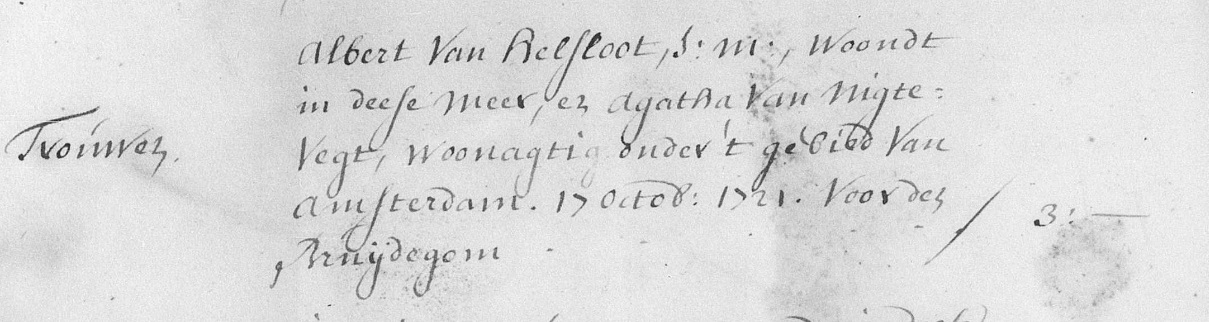 Albert Van Helsloot, J: m:, Woondt
in deese Meer, en Agatha Van Nigte=
Trouwen. Vegt, Woonagtig onder 't gebied Van
Amsterdam. 17 Octob: 1721. Voor den
Bruijdegom / 3:—